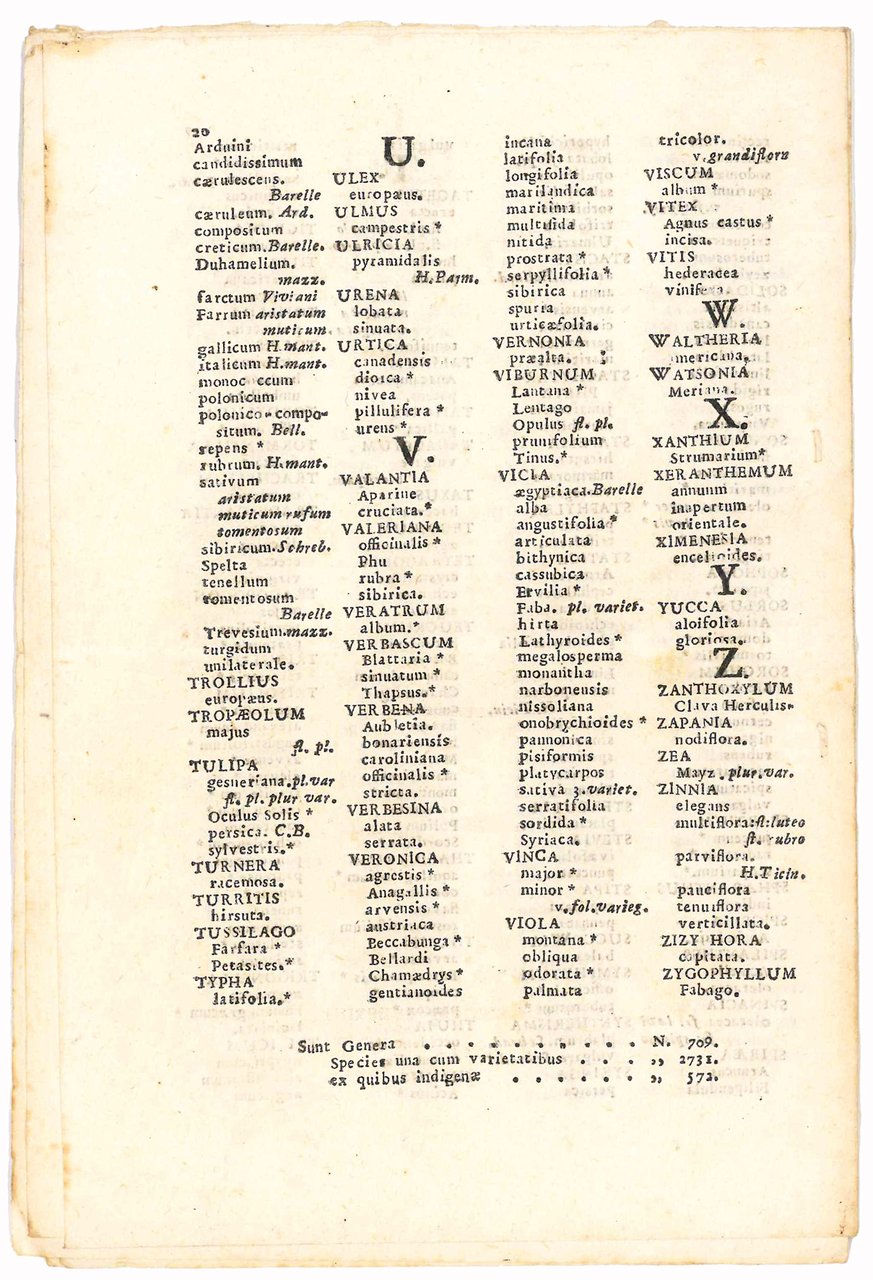 20
Arduini
candidissimum
cærulescens.
Barelle
cæruleum. Ard.
compositum
creticum. Barelle.
Duhamelium.
mazz.
farctum Viviani
Farrum aristatum
muticum.
gallicum H. mant.
italicum H. mant.
monoc ccum
polonicum
polonico-compo-
situm. Bell.
repens *
rubrum. H. mant.
sativum
aristatum
muticum rufum
tomentosum
sibiricum. Schreb.
Spelta
tenellum
tomentosum
Barelle
Trevesium. mazz.
turgidum
unilaterale.
TROLLIUS
europæus.
TROPÆOLUM
majus
fl. pl.
TULIPA
gesneriana. pl. var
fl. pl. plur var.
Oculus Solis *
persica. C. B.
sylvestris.*
TURNERA
racemosa.
TURRITIS
hirsuta.
TUSSILAGO
Farfara *
Petasites.*
TYPHA
latifolia.*
U.
ULEX
europæus.
ULMUS
campestris *
ULRICIA
pyramidalis
H. Parm.
URENA
lobata
sinuata.
URTICA
canadensis
dioica *
nivea
pillulifera *
urens *
V.
VALANTIA
Aparine
cruciata.*
VALERIANA
officinalis *
Phu
rubra *
sibirica.
VERATRUM
album.*
VERBASCUM
Blattaria *
sinuatum *
Thapsus.*
VERBENA
Aubletia.
bonariensis
caroliniana
officinalis *
stricta.
VERBESINA
alata
serrata.
VERONICA
agrestis *
Anagallis *
arvensis *
austriaca
Beccabunga *
Bellardi
Chamædrys *
gentianoides
incana
latifolia
longifolia
marilandica
maritima
multifida
nitida
prostrata *
serpyllifolia *
sibirica
spuria
urticæfolia.
VERNONIA
præalta.
VIBURNUM
Lantana *
Lentago
Opulus fl. pl.
prunifolium
Tinus.*
VICIA
ægyptiaca. Barelle
alba
angustifolia *
articulata
bithynica
cassubica
Ervilia *
Faba. pl. variet.
hirta
Lathyroides *
megalosperma
monantha
narbonensis
nissoliana
onobrychioides *
pannonica
pisiformis
platycarpos
sativa 3. variet.
serratifolia
sordida *
Syriaca.
VINCA
major *
minor *
v. fol. varieg.
VIOLA
montana *
obliqua
odorata *
palmata
tricolor.
v. grandiflora
VISCUM
album *
VITEX
Agnus castus *
incisa.
VITIS
hederacea
vinifera.
W.
WALTHERIA
americana.
WATSONIA
Meriana.
X.
XANTHIUM
Strumarium*
XERANTHEMUM
annunm
inapertum
orientale.
XIMENESIA
encelioides.
Y.
YUCCA
aloifolia
gloriosa.
Z.
ZANTHOXYLUM
Clava Herculis.
ZAPANIA
nodiflora.
ZEA
Mayz. plur. var.
ZINNIA
elegans
multiflora: fl: luteo
fl. rubro
parviflora.
H. Ticin.
pauciflora
tenuiflora
verticillata.
ZIZY HORA
capitata.
ZYGOPHYLLUM
Fabago.
Sunt Genera . . . . . . . . . . N. 709.
Species una cum varietatibus . . . ,, 2731.
ex quibus indigenæ . . . . . . ,, 572.